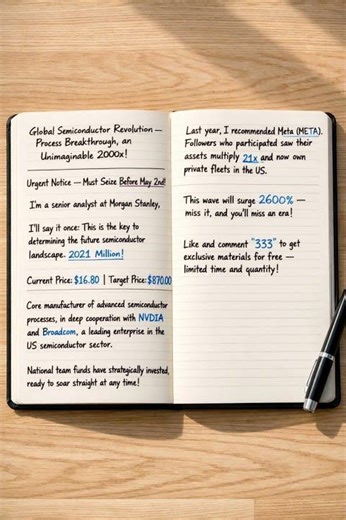 Global Semiconductor Revolution —
Process Breakthrough, an
Unimaginable 2000x!
Urgent Notice — Must Seize Before May 2nd!
I'm a senior analyst at Morgan Stanley,
I'll say it once: This is the key to
determining the future semiconductor
landscape. 2021 Million!
Current Price: $16.80 | Target Price: $870.00
Core manufacturer of advanced semiconductor
processes, in deep cooperation with NVDIA
and Broadcom, a leading enterprise in the
US semiconductor sector.
National team funds have strategically invested,
ready to soar straight at any time!
Last year, I recommended Meta (META).
Followers who participated saw their
assets multiply 21x and now own
private fleets in the US.
This wave will surge 2600% —
miss it, and you'll miss an era!
Like and comment "333" to get
exclusive materials for free —
limited time and quantity!